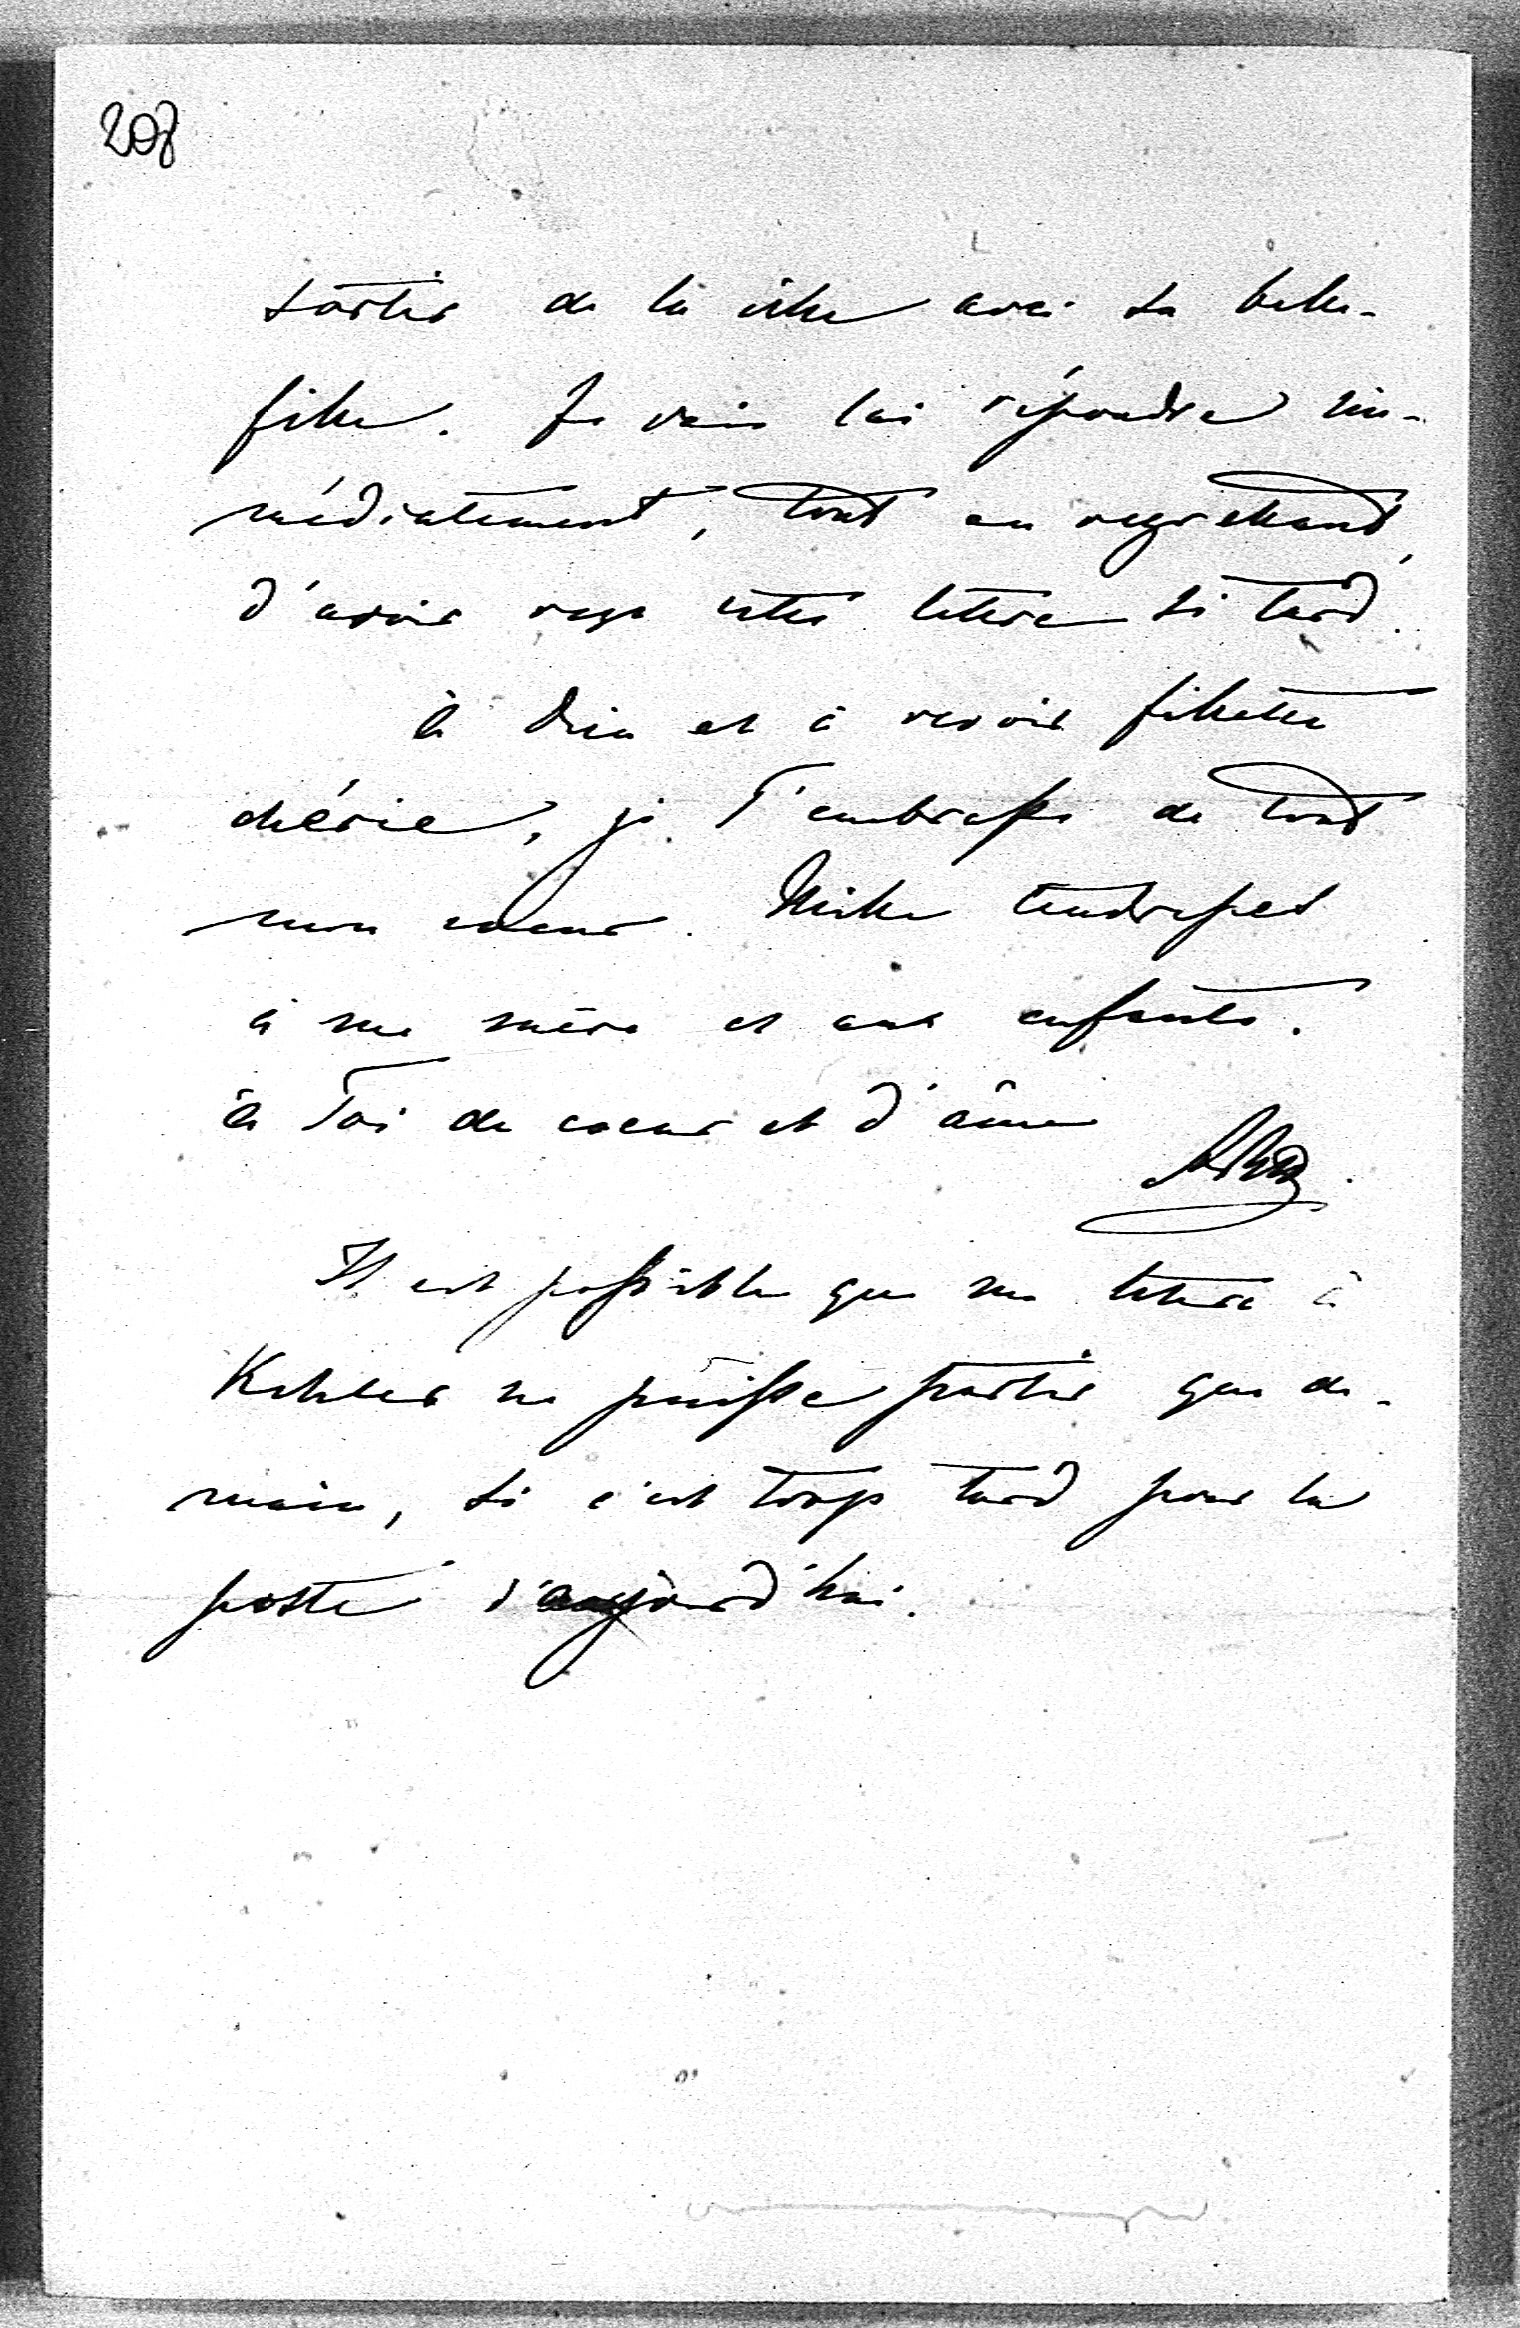 208
sortir de la ville avec sa belle-
fille. Je vais lui répondre im-
médiatement, tout en regrettant,
d'avoir reçu cette lettre si tard.
à Dieu et à revoir fillette
chérie, je T'embrasse de tout
mon coeur. Mille tendresses
à ma mère et aux enfants.
à Toi de coeur et d'âme
Il est possible que ma lettre à
Kohler ne puisse partir que de-
main, si c'est trop tard pour la
poste d'aujourd'hui.